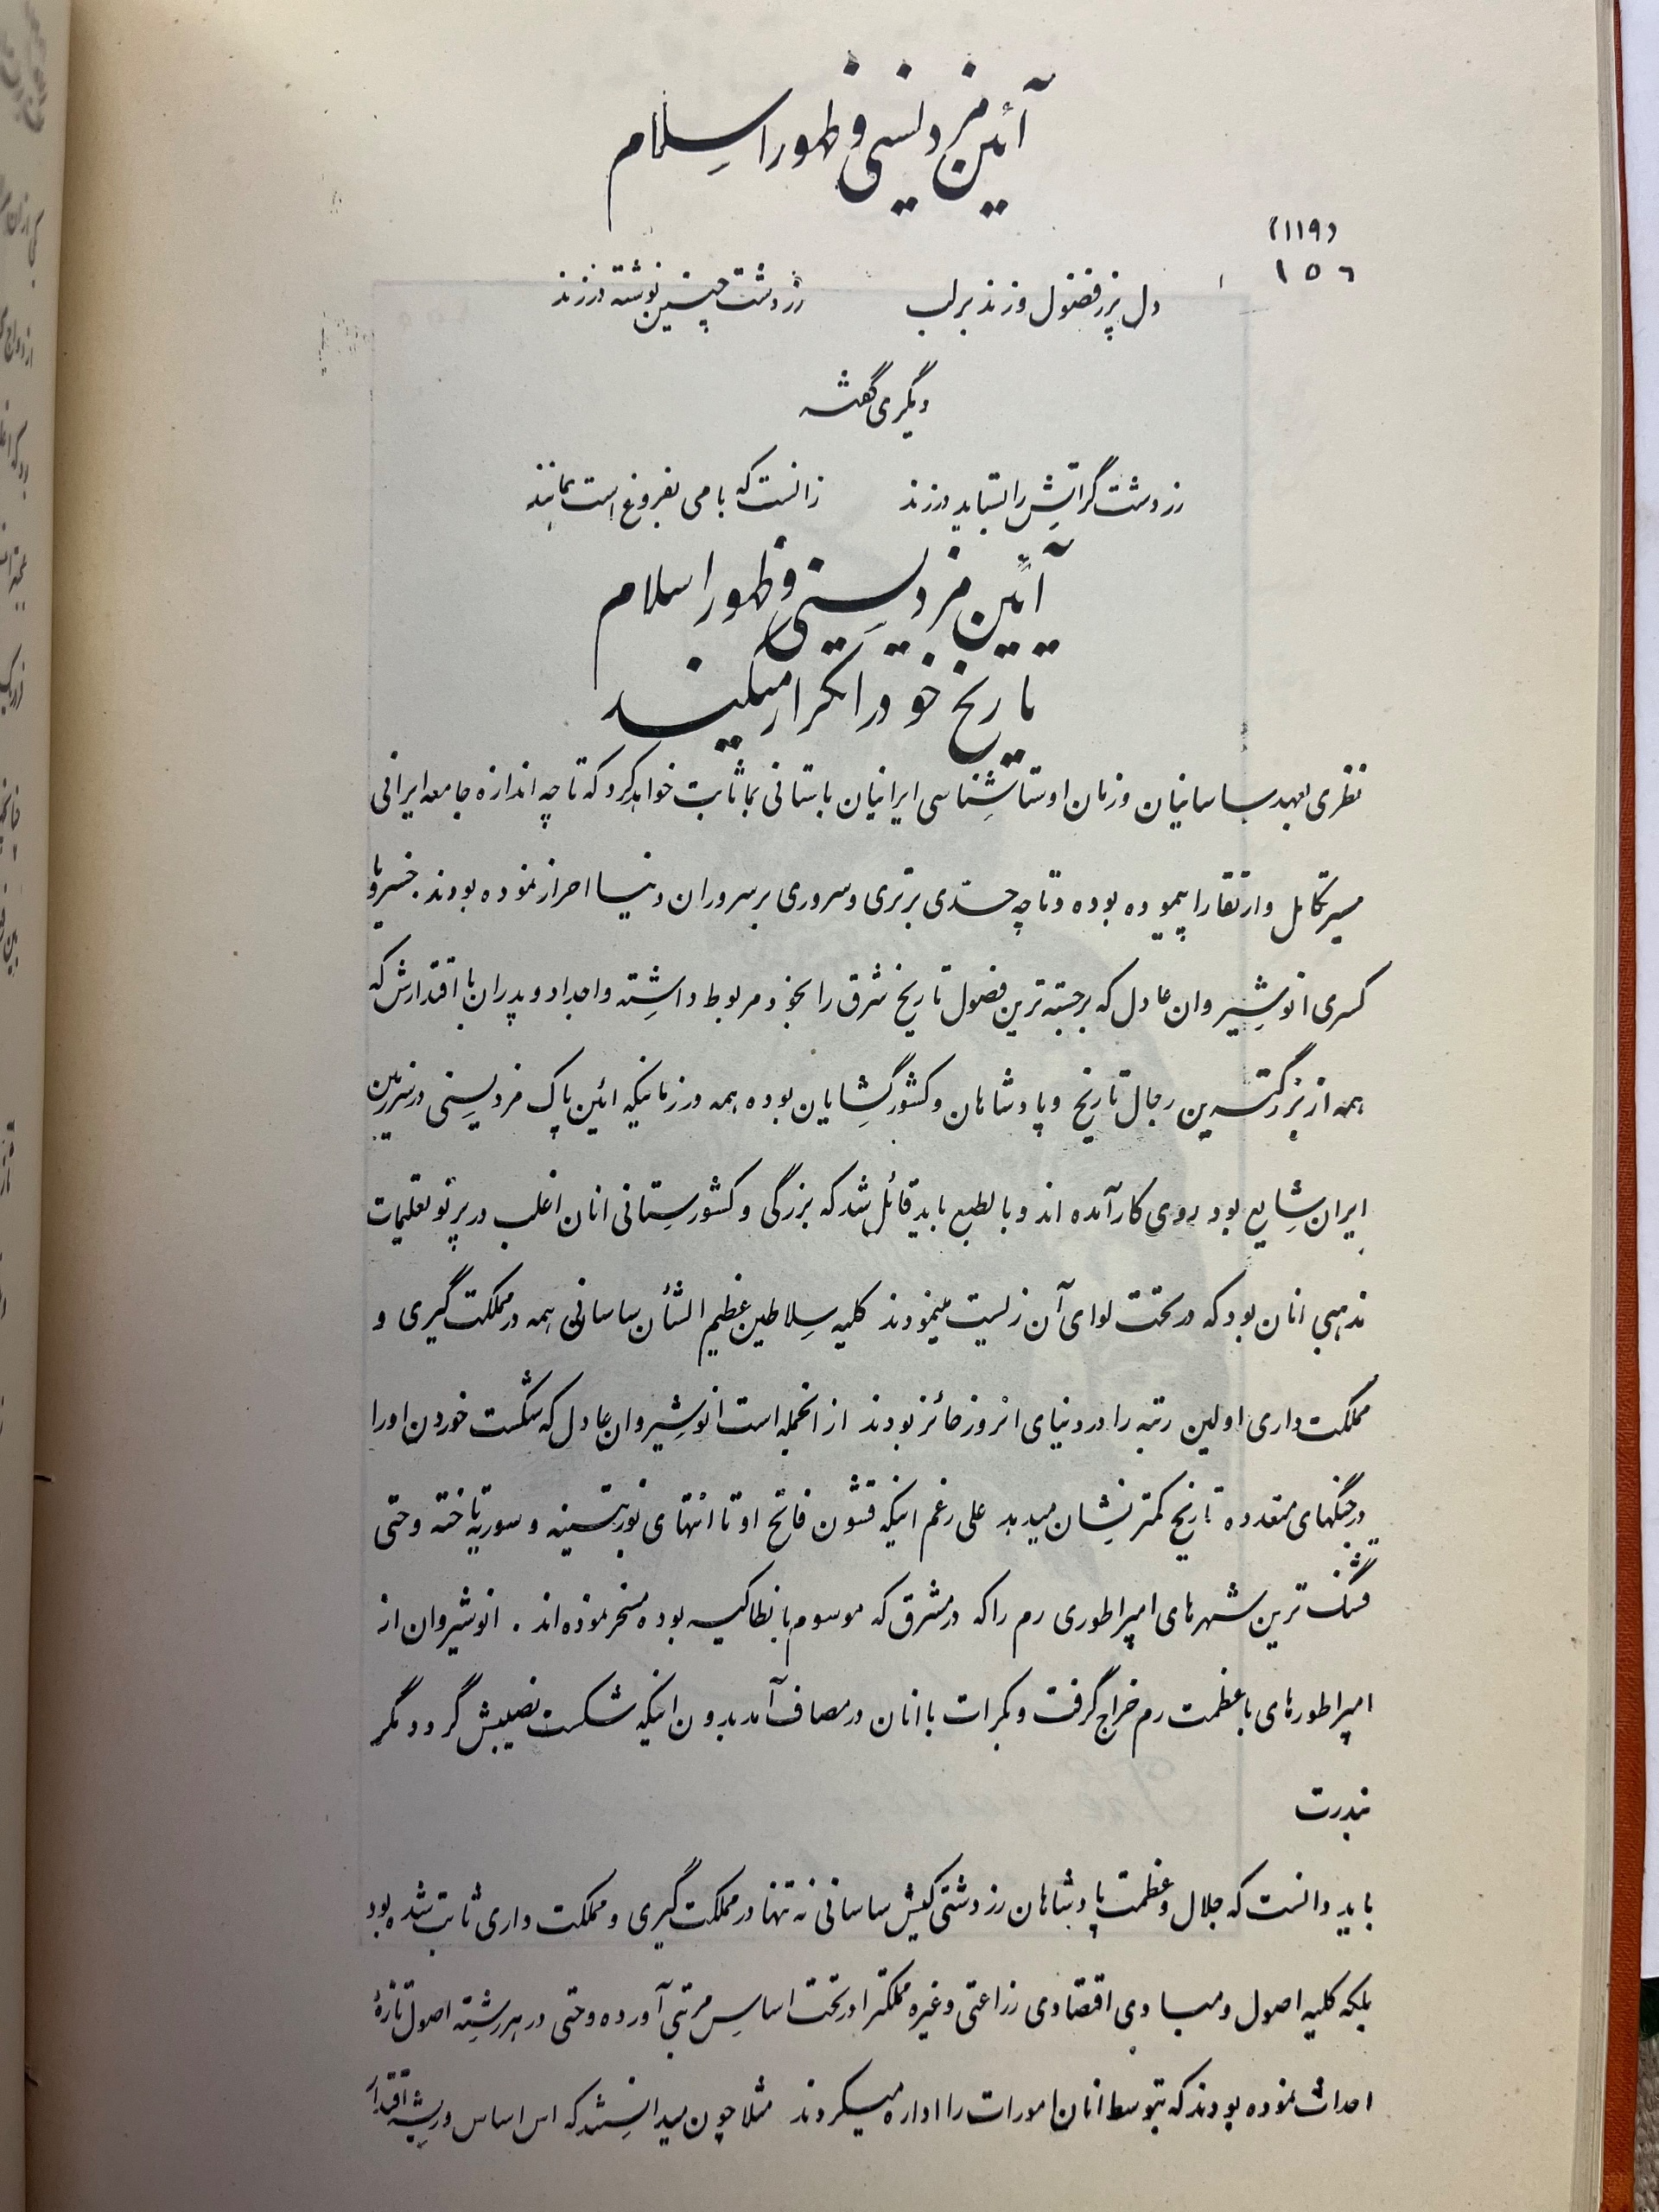 آئین مزدیسنی و ظهور اسلام
(۱۱۹)
۱۵۶
دل پر ز فضول و زند بر لب    زردشت چنین نوشته در زند
دیگری گفته
زردشت گر آتش را بستاید در زند    زانست که با می بفروغ است بمانند
آئین مزدیسنی و ظهور اسلام
تاریخ خود را تکرار میکند
نظری بعهد ساسانیان و زمان اوستا شناسی ایرانیان باستانی بما ثابت خواهد کرد که تا چه اندازه جامعه ایرانی
مسیر تکامل و ارتقا را پیموده بوده و تا چه حدّی برتری و سروری بر سروران دنیا احراز نموده بودند. خسرو یا
کسری انوشیروان عادل که برجسته ترین فصول تاریخ شرق را بخود مربوط داشته و اجداد و پدران با اقتدارش که
همه از بزرگترین رجال تاریخ و پادشاهان و کشور گشایان بوده همه در زمانیکه ائین پاک مزدیسنی در سرزمین
ایران شایع بود روی کار آمده اند و بالطبع باید قائل شد که بزرگی و کشورستانی انان اغلب در پرتو تعلیمات
مذهبی انان بود که در تحت لوای آن زیست مینمودند کلیه سلاطین عظیم الشأن ساسانی همه در مملکت گیری و
مملکت داری اولین رتبه را در دنیای انروز حائز بودند از انجمله است انوشیروان عادل که شکست خوردن او را
در جنگهای متعدده تاریخ کمتر نشان میدهد علی رغم اینکه قشون فاتح او تا انتهای بوزنتینه و سوریه تاخته و حتی
قشنگ ترین شهرهای امپراطوری رم را که در مشرق که موسوم بانطاکیه بوده مسخر نموده اند . انوشیروان از
امپراطورهای با عظمت رم خراج گرفت و بکرات با انان در مصاف آمد بدون اینکه شکست نصیبش گردد مگر
بندرت
باید دانست که جلال و عظمت پادشاهان زردشتی کیش ساسانی نه تنها در مملکت گیری و مملکت داری ثابت شده بود
بلکه کلیه اصول و مبادی اقتصادی زراعتی و غیره مملکترا در تحت اساس مرتبی آورده و حتی در هر رشته اصول تازهٔ
احداث نموده بودند که بتوسط انان امورات را اداره میکردند مثلا چون میدانستند که اس اساس و ریشه اقتدار